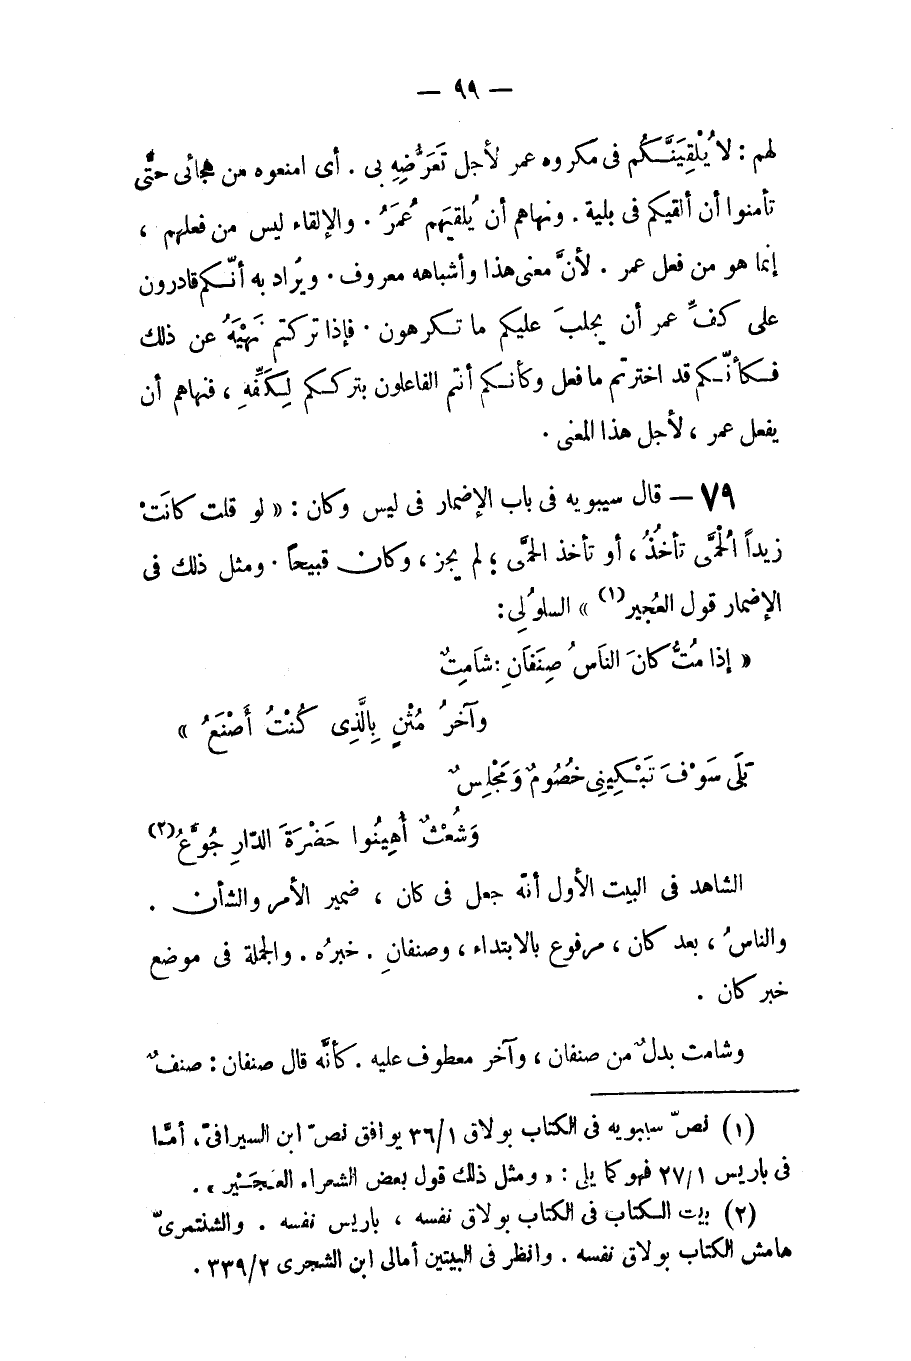 — ٩٩ —
لهم : لا يُلْقِيَنَّكُم فى مكروه عمر لأجل تَعَرُّضِهِ بى . أى امنعوه من هجائى حتَّى
تأمنوا أن ألقيكم فى بلية . ونهاهم أن يُلقيَهم عُمَرُ . والإلقاء ليس من فعلهم ،
إنما هو من فعل عمر . لأنَّ معنى هذا وأشباهه معروف . ويُراد به أنّكم قادرون
على كفِّ عمر أن يجلبَ عليكم ما تكرهون . فإذا تركتم نَهْيَهُ عن ذلك
فكأنّكم قد اخترتم ما فعل وكأنكم أنتم الفاعلون بترككم لِكَفِّهِ ، فنهاهم أن
يفعل عمر ، لأجل هذا المعنى .
٧٩ — قال سيبويه فى باب الإضمار فى ليس وكان : « لو قلت كانَتْ
زيداً الْحُمَّى تأخُذُ ، أو تأخذ الحمَّى ؛ لم يجز ، وكان قبيحاً . ومثل ذلك فى
الإضمار قول العُجير (١) » السلولى :
« إذا مُتُّ كانَ الناسُ صِنَفَانِ : شامِتٌ
وآخرُ مُثْنٍ بِالَّذِى كُنْتُ أَصْنَعُ »
بَلَى سَوْفَ تَبْكِينِى خُصُومٌ وَمَجْلِسٌ
وَشُعْثٌ أُهِينُوا حَضْرَةَ الدّارِ جُوَّعُ (٢)
الشاهد فى البيت الأول أنّه جعل فى كان ، ضمير الأمر والشأن .
والناسُ ، بعد كان ، مرفوع بالابتداء ، وصنفانِ . خبرُه . والجملة فى موضع
خبر كان .
وشامت بدلٌ من صنفان ، وآخر معطوف عليه . كأنّه قال صنفان : صنفٌ
(١) نصّ سيبويه فى الكتاب بولاق ٣٦/١ يوافق نصّ ابن السيرافىّ ، أمَّا
فى باريس ٢٧/١ فهو كما يلى : « ومثل ذلك قول بعض الشعراء العجَيْر » .
(٢) بيت الكتاب فى الكتاب بولاق نفسه ، باريس نفسه . والشنتمرىّ
هامش الكتاب بولاق نفسه . وانظر فى البيتين أمالى ابن الشجرى ٣٣٩/٢ .